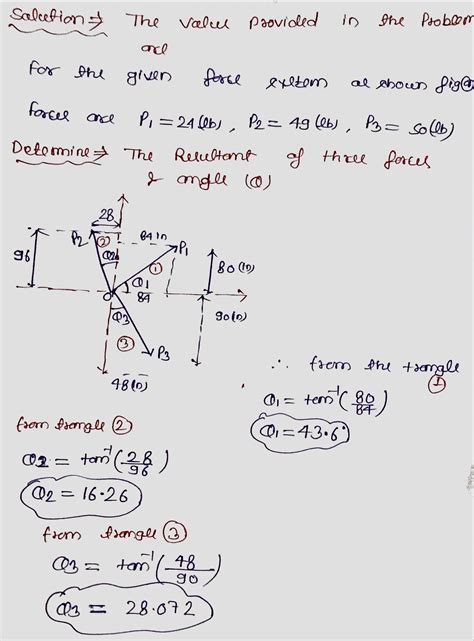 Solution ⇒ The value provided in the Problem
are
for the given force system as shown fig@
forces are P1 = 24(lb), P2 = 49(lb), P3 = 50(lb)
Determine ⇒ The Resultant of three forces
& angle (θ)
28
P2
②
84 in
P1
96
θ2
①
80(in)
O
θ1
84
90(in)
θ3
③
P3
48(in)
∴ from the triangle ①
θ1 = tan⁻¹(80/84)
θ1 = 43.6°
from triangle ②
θ2 = tan⁻¹(28/96)
θ2 = 16.26
from triangle ③
θ3 = tan⁻¹(48/90)
θ3 = 28.072